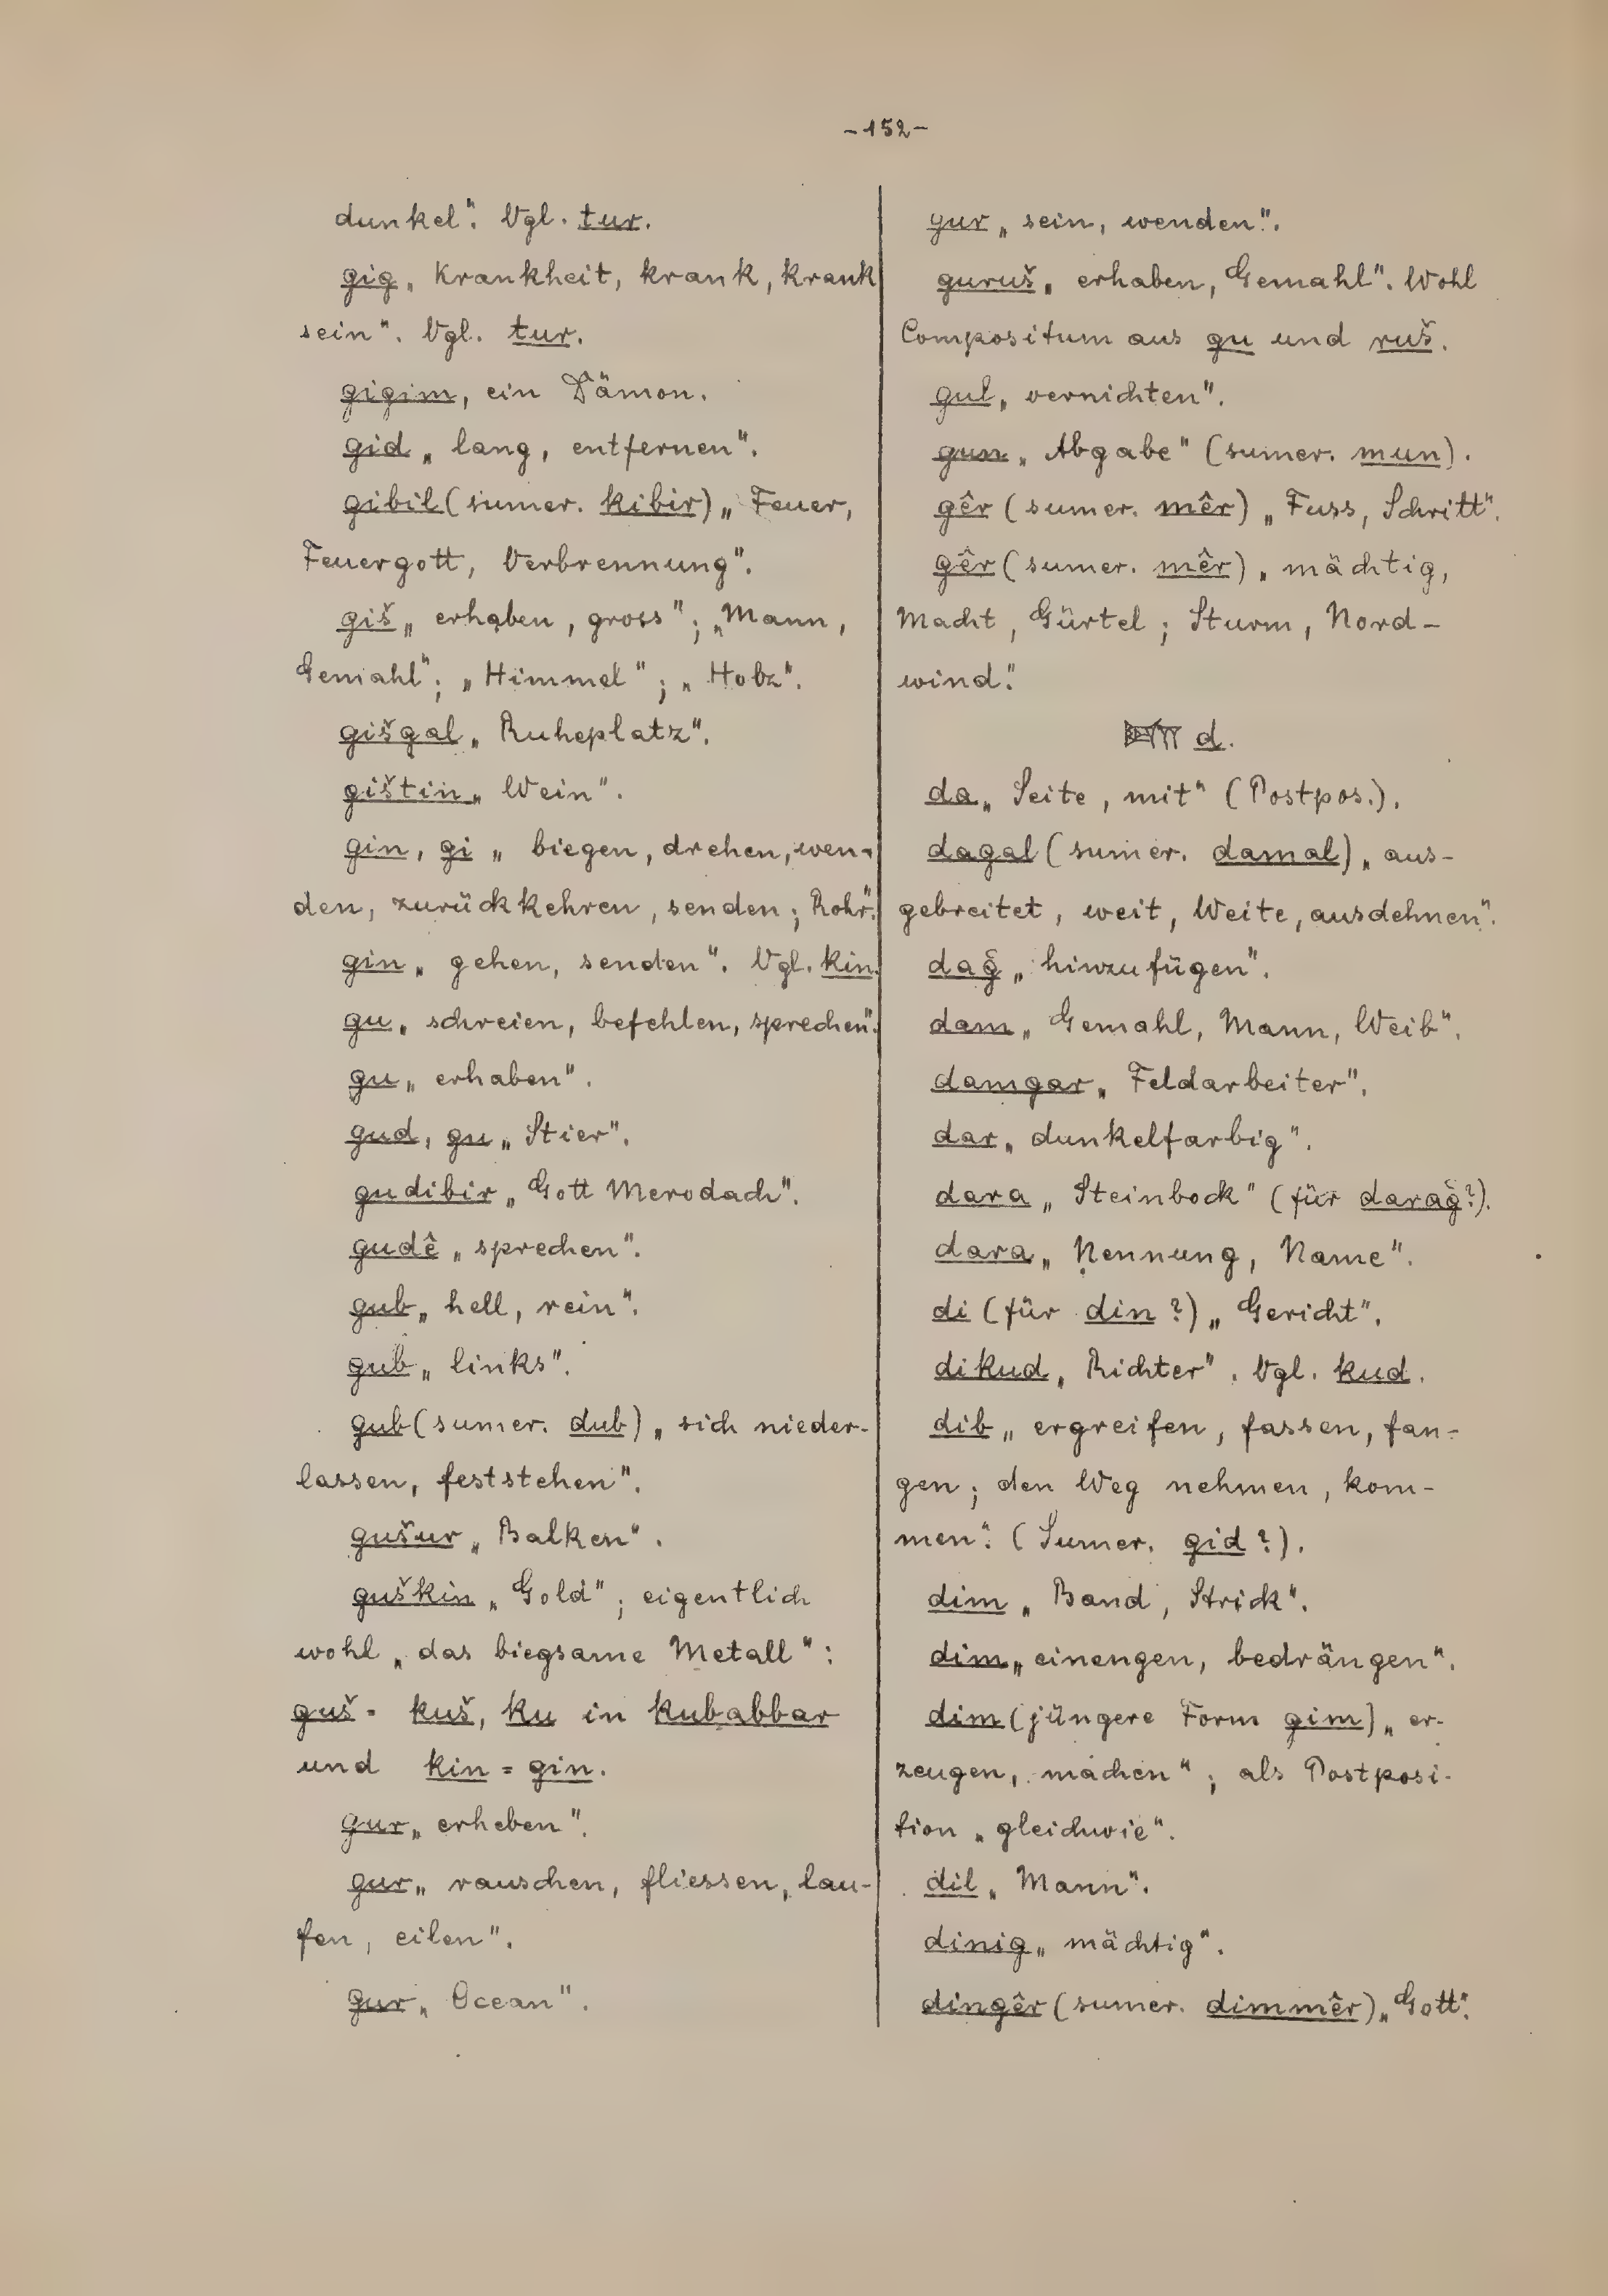 -152-
dunkel". Vgl. tur.
gig „Krankheit, krank, krank
sein". Vgl. tur.
gigim, ein Dämon.
gid „lang, entfernen".
gibil (sumer. kibir) „Feuer,
Feuergott, Verbrennung".
giš „erhaben, gross"; „Mann,
Gemahl"; „Himmel"; „Holz".
gišgal „Ruheplatz".
gištin „Wein".
gin, gi „biegen, drehen, wen-
den, zurückkehren, senden; Rohr".
gin „gehen, senden". Vgl. kin.
gu „schreien, befehlen, sprechen".
gu „erhaben".
gud, gu „Stier".
gudibir „Gott Merodach".
gudê „sprechen".
gub „hell, rein".
gub „links".
gub (sumer. dub) „sich nieder-
lassen, feststehen".
gušur „Balken".
guškin „Gold"; eigentlich
wohl „das biegsame Metall":
guš = kuš, ku in kubabbar
und kin = gin.
gur „erheben".
gur „rauschen, fliessen, lau-
fen, eilen".
gur „Ocean".
gur „sein, wenden".
guruš „erhaben, Gemahl". Wohl
Compositum aus gu und ruš.
gul „vernichten".
gun „Abgabe" (sumer. mun).
gêr (sumer. mêr) „Fuss, Schritt".
gêr (sumer. mêr) „mächtig,
Macht, Gürtel; Sturm, Nord-
wind".
d.
da „Seite, mit" (Postpos.).
dagal (sumer. damal) „aus-
gebreitet, weit, Weite, ausdehnen".
dağ „hinzufügen".
dam „Gemahl, Mann, Weib".
damgar „Feldarbeiter".
dar „dunkelfarbig".
dara „Steinbock" (für darağ?).
dara „Nennung, Name".
di (für din?) „Gericht".
dikud „Richter". Vgl. kud.
dib „ergreifen, fassen, fan-
gen; den Weg nehmen, kom-
men". (Sumer. gid?).
dim „Band, Strick".
dim „einengen, bedrängen".
dim (jüngere Form gim) „er-
zeugen, machen"; als Postposi-
tion „gleichwie".
dil „Mann".
dinig „mächtig".
dingêr (sumer. dimmêr) „Gott".